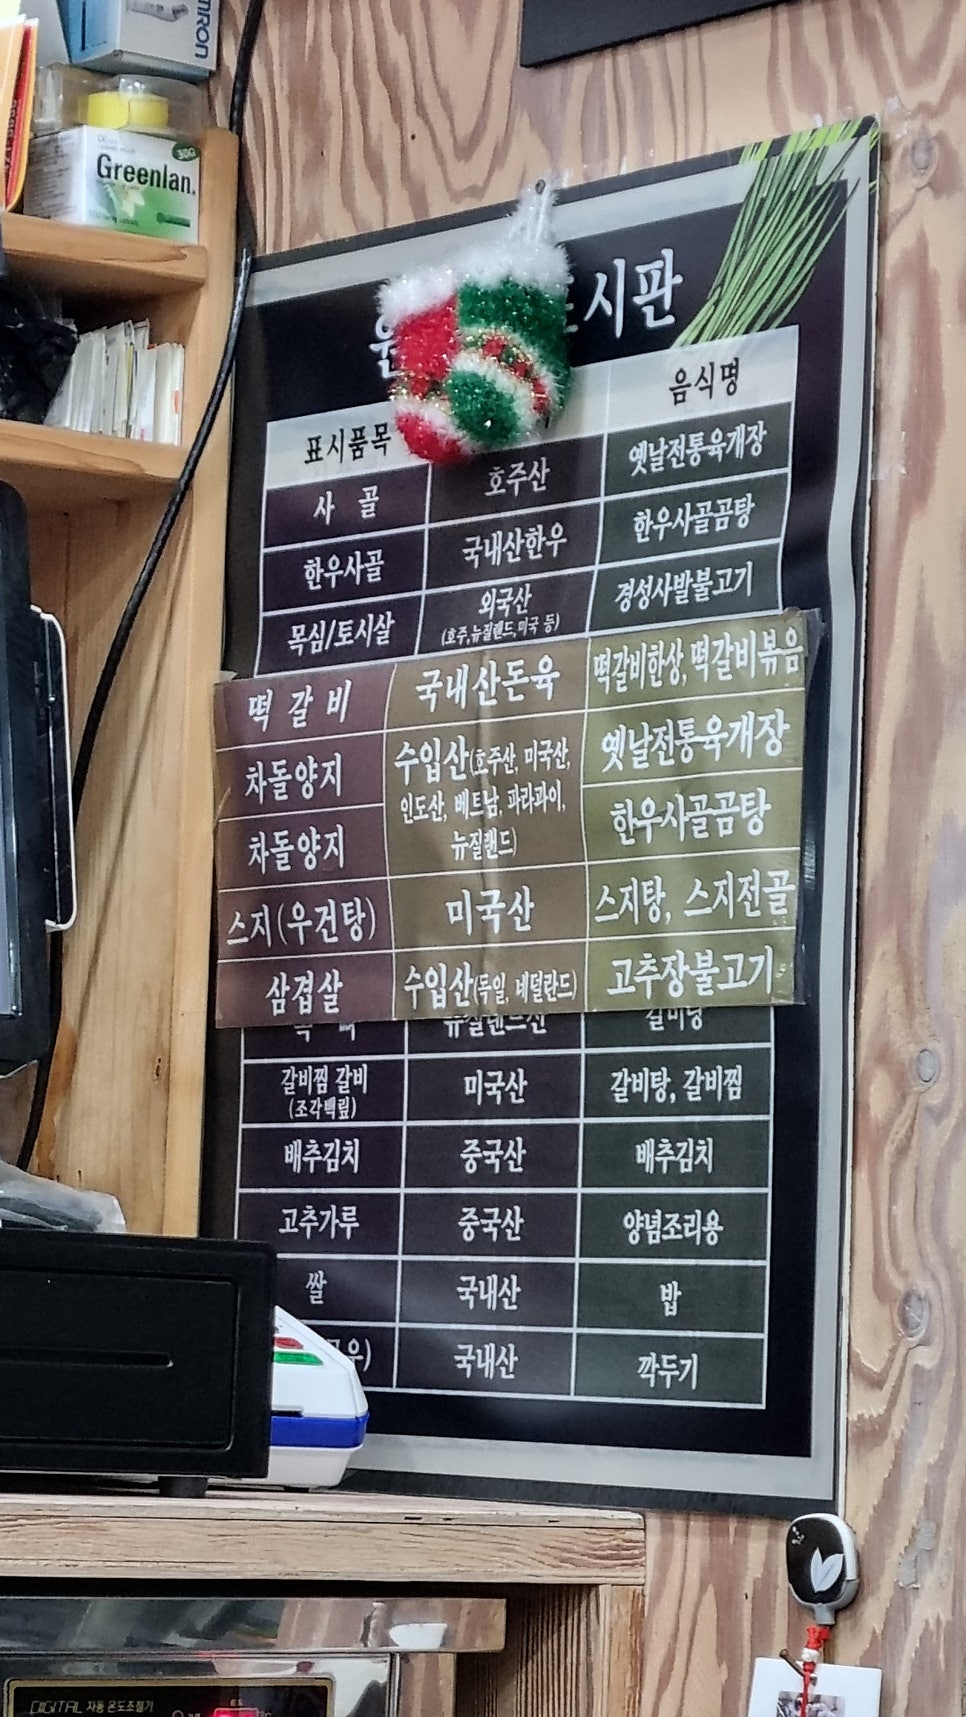 OMRON
Greenlan
30G
시판
표시품목 음식명
사 골 호주산 옛날전통육개장
한우사골 국내산한우 한우사골곰탕
목심/토시살 외국산 경성사발불고기
(호주,뉴질랜드,미국 등)
떡 갈 비 국내산돈육 떡갈비한상, 떡갈비볶음
차돌양지 수입산(호주산, 미국산, 옛날전통육개장
인도산, 베트남, 파라과이,
차돌양지 뉴질랜드) 한우사골곰탕
스지(우건탕) 미국산 스지탕, 스지전골
삼겹살 수입산(독일, 네덜란드) 고추장불고기
갈비찜 갈비 미국산 갈비탕, 갈비찜
(조각백립)
배추김치 중국산 배추김치
고추가루 중국산 양념조리용
쌀 국내산 밥
우) 국내산 깍두기
DIGITAL 자동 온도조절기